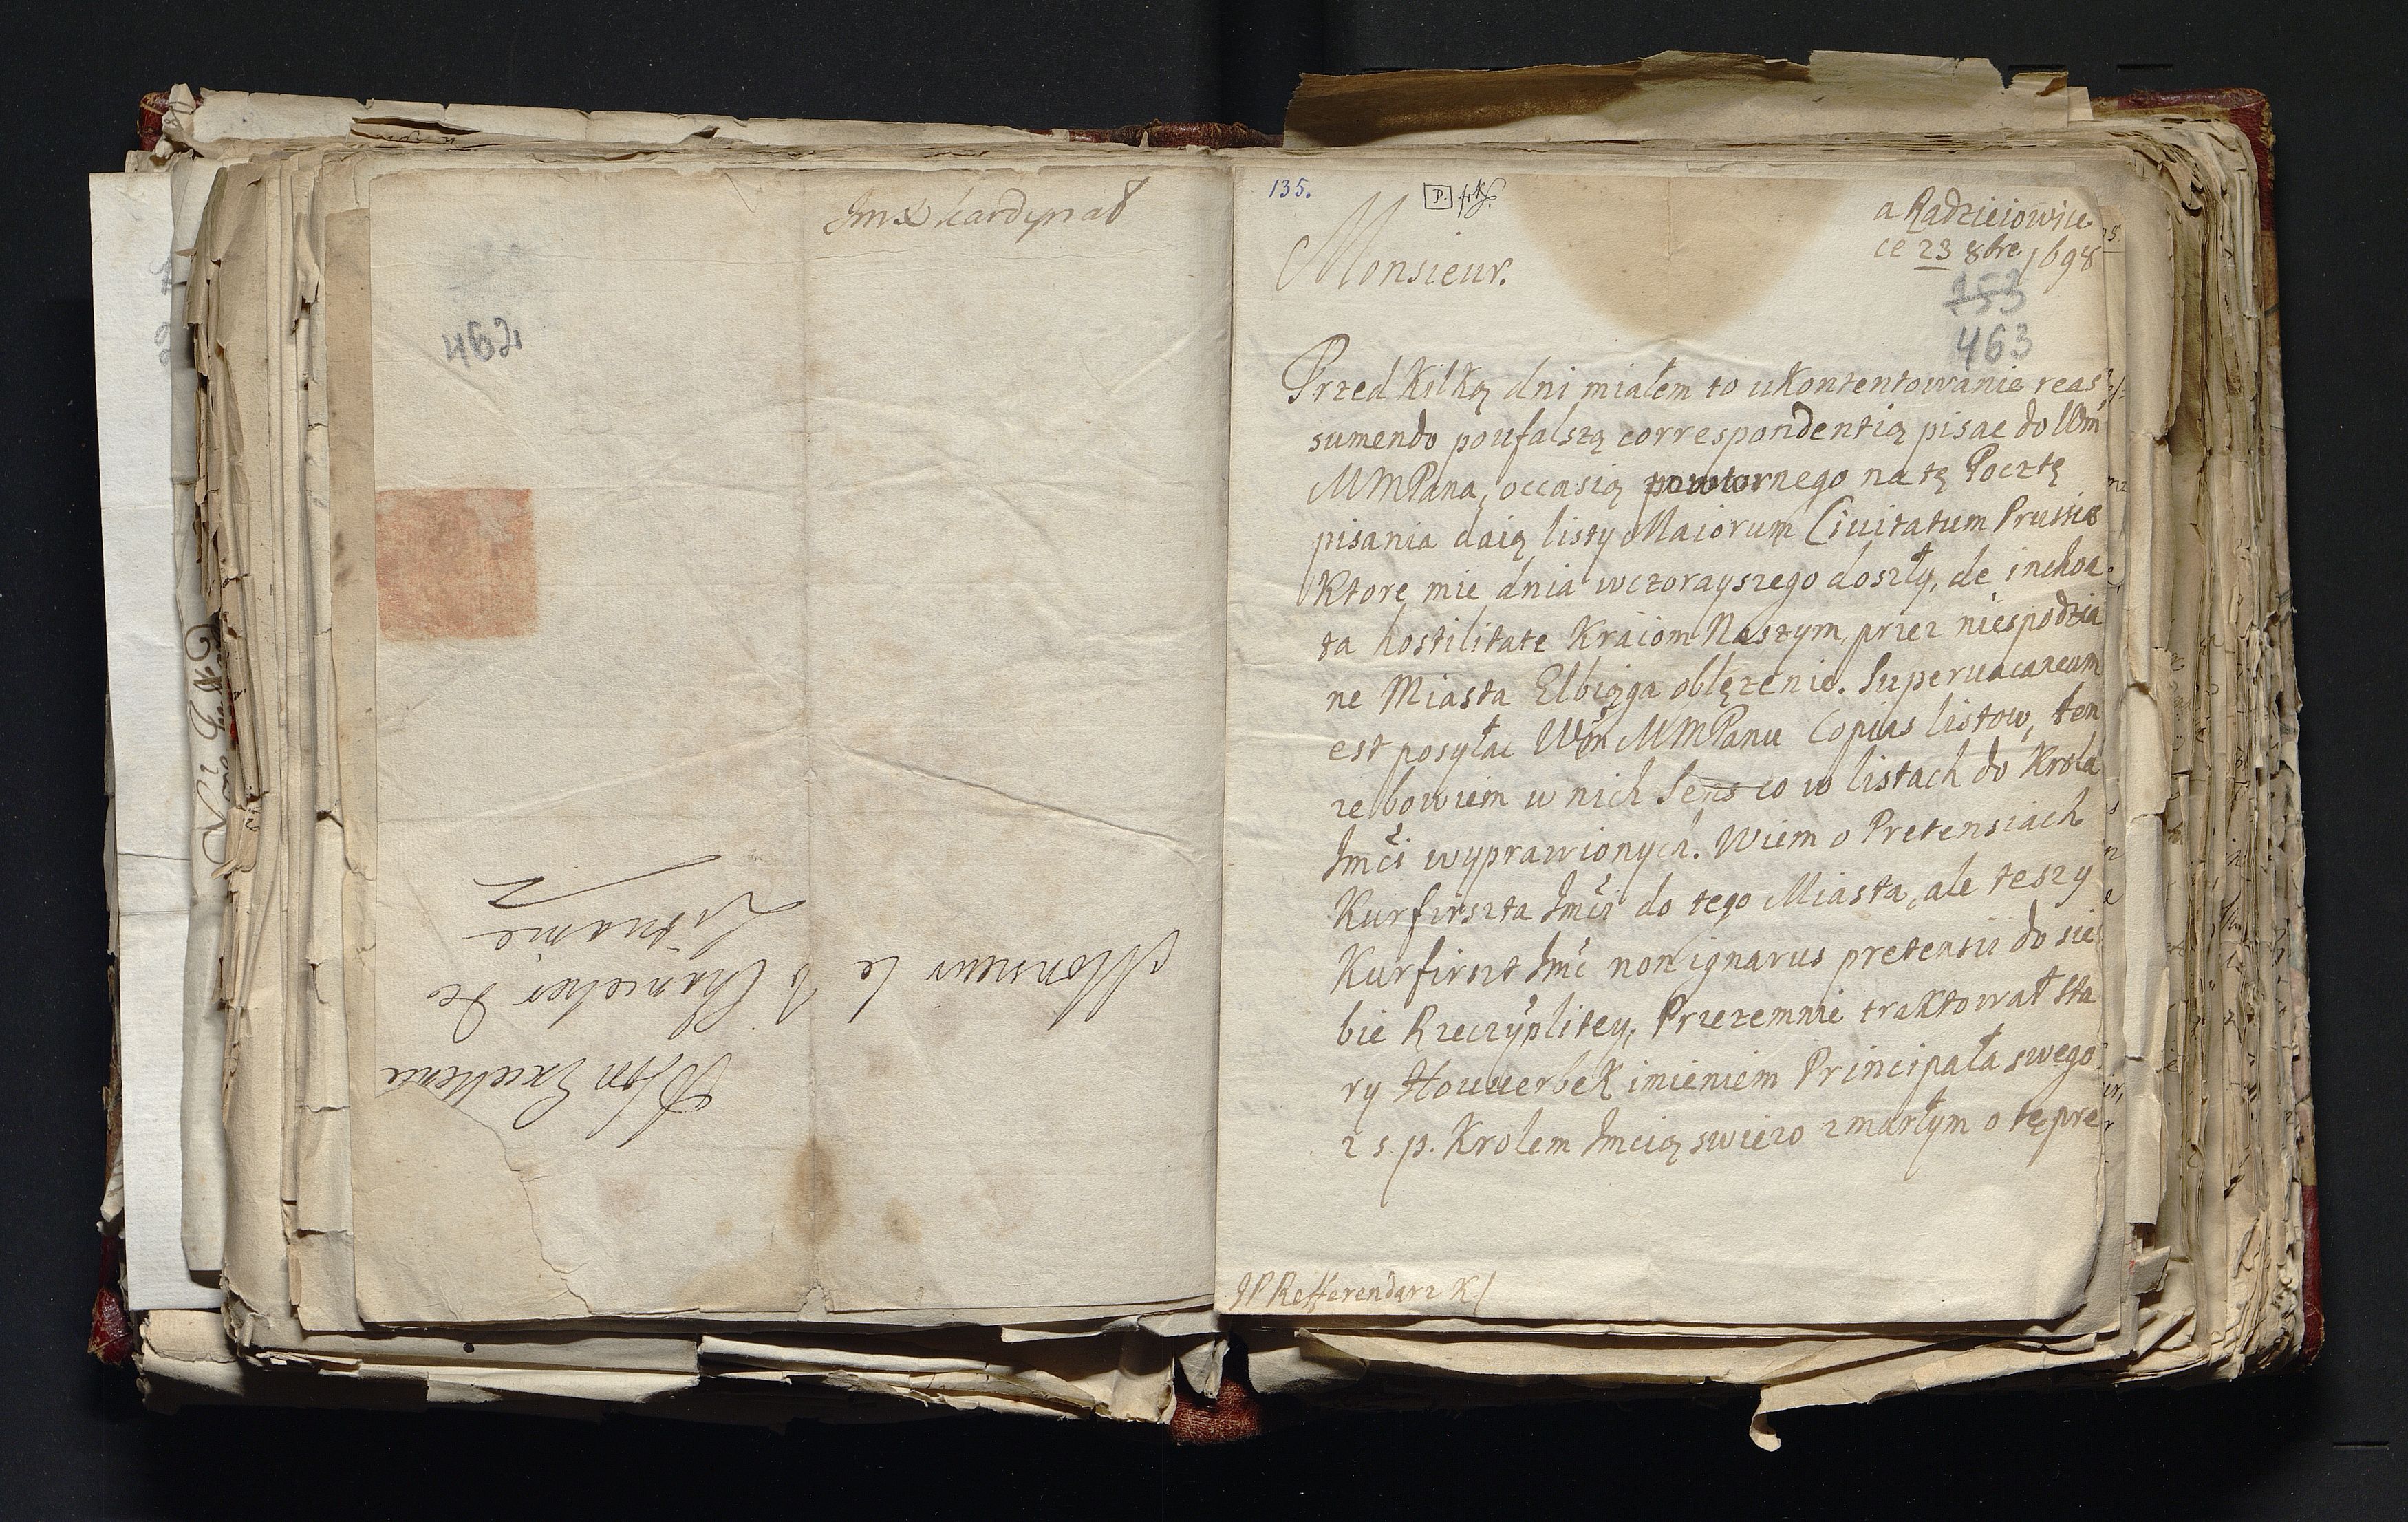 Jmx Kardynał
462
A Son Excellence
Monsieur le V Chancelier de
Lituanie
135.
P.
a Radzieiowice
ce 23 8bre 1698
Monsieur.
253
463
Przed kilką dni miałem to ukontentowanie reas
sumendo poufalszą correspondentią pisac do Wm
MMPana, occasią powtornego na tę Pocztę
pisania daią listy Maiorum Ciuitatum Prussiæ
Ktore mie dnia wczorayszego doszły, de inchoa
ta hostilitate Kraiom Naszym, przez niespodzia
ne Miasta Elbiąga oblęzenie. Superuacaneum
est posyłac Wm MMPanu Copias listow, ten
ze bowiem w nich Sens co w listach do Krola
Jmci wyprawionych. Wiem o Pretensiach
Kurfirszta Jmci do tego Miasta, ale teszy
Kurfirszt Jmc non ignarus pretensii do sie
bie Rzeczyplitey, Przezemnie traktował sta
ry Houuerbek imieniem Principała swego
z s. p. Krolem Jmcią swiezo zmarłym o tę pre
JP Refferendarz K.